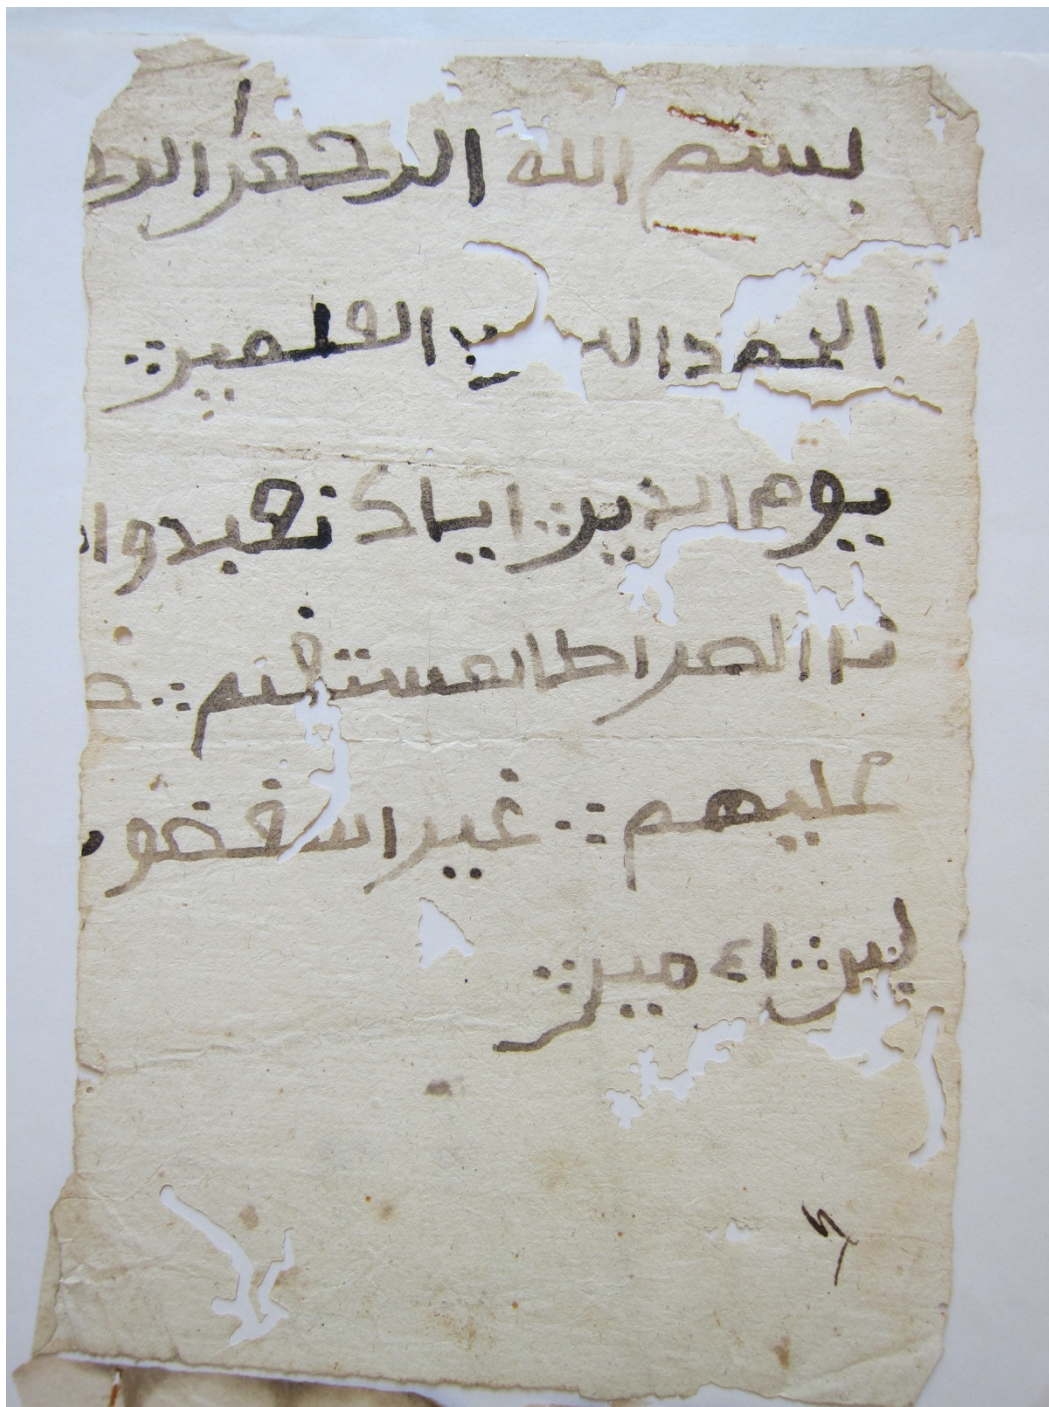 بسم الله الرحمن الرحـ
الحمد الـ ـب العلمين
يوم الدين اياك نعبد وا
نا الصراط المستقيم
عليهم غير المغضو
لين اءمين